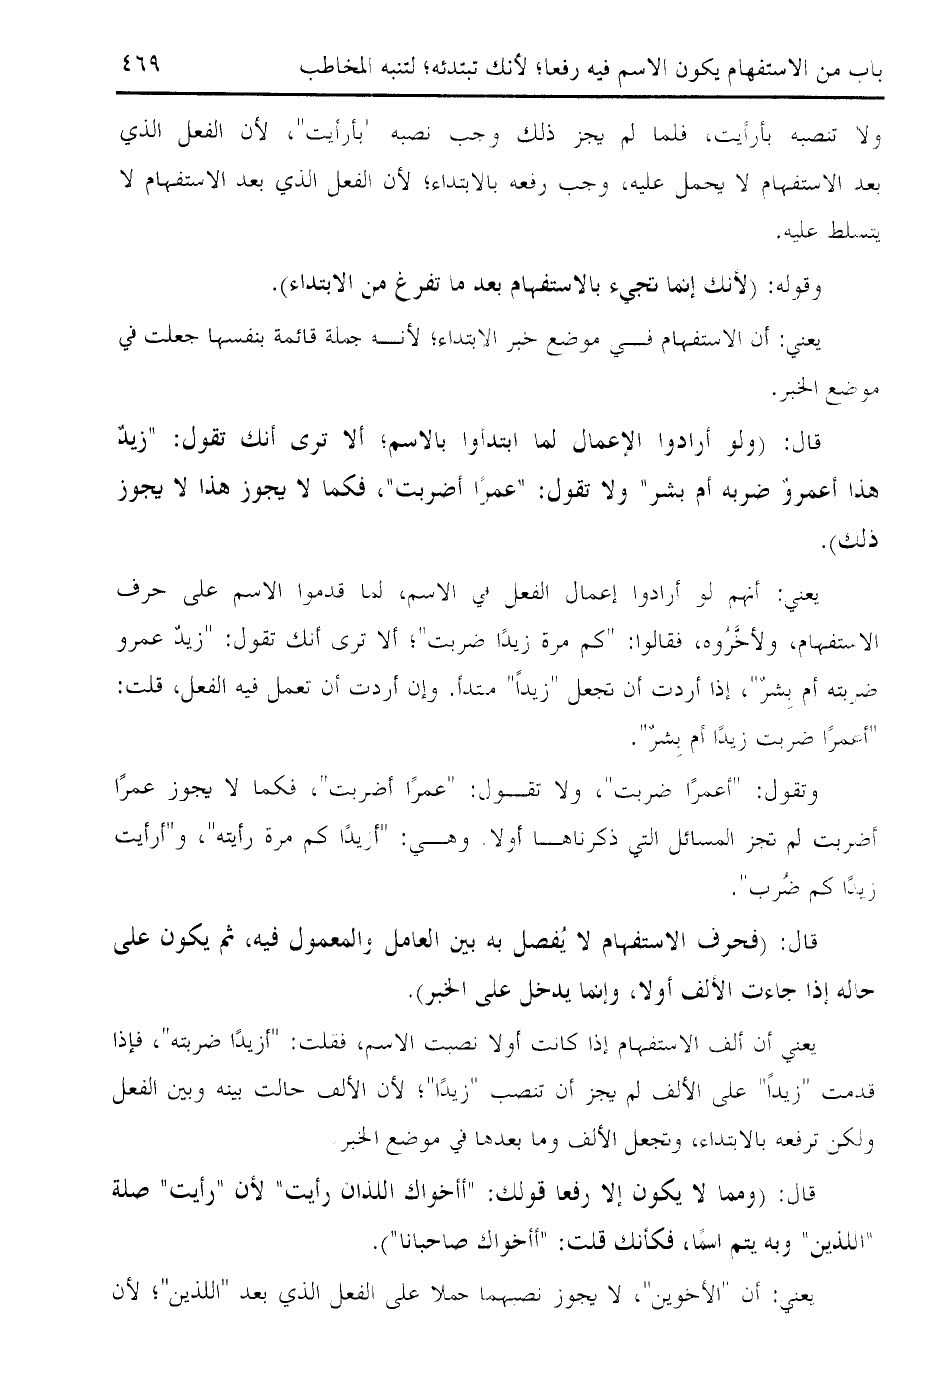 باب من الاستفهام يكون الاسم فيه رفعا؛ لأنك تبتدئه؛ لتنبه المخاطب ٤٦٩
ولا تنصبه بأرأيت، فلما لم يجز ذلك وجب نصبه "بأرأيت"، لأن الفعل الذي
بعد الاستفهام لا يحمل عليه، وجب رفعه بالابتداء؛ لأن الفعل الذي بعد الاستفهام لا
يتسلط عليه.
وقوله: (لأنك إنما تجيء بالاستفهام بعد ما تفرغ من الابتداء).
يعني: أن الاستفهام فـــي موضع خبر الابتداء؛ لأنـــه جملة قائمة بنفسها جعلت في
موضع الخبر.
قال: (ولو أرادوا الإعمال لما ابتدأوا بالاسم؛ ألا ترى أنك تقول: "زيدٌ
هذا أعمروٌ ضربه أم بشر" ولا تقول: "عمرًا أضربت"، فكما لا يجوز هذا لا يجوز
ذلك).
يعني: أنهم لو أرادوا إعمال الفعل في الاسم، لما قدموا الاسم على حرف
الاستفهام، ولأخَّرُوه، فقالوا: "كم مرة زيدًا ضربت"؛ ألا ترى أنك تقول: "زيدٌ عمرو
ضربته أم بِشرٌ"، إذا أردت أن تجعل "زيداً" مبتدأ. وإن أردت أن تعمل فيه الفعل، قلت:
"أعمرًا ضربت زيدًا أم بِشرٌ".
وتقول: "أعمرًا ضربت"، ولا تقـــول: "عمرًا أضربت"، فكما لا يجوز عمرًا
أضربت لم تجز المسائل التي ذكرناهـــا أولا. وهـــي: "أزيدًا كم مرة رأيته"، و"أرأيت
زيدًا كم ضُرب".
قال: (فحرف الاستفهام لا يُفصل به بين العامل والمعمول فيه، ثم يكون على
حاله إذا جاءت الألف أولا، وإنما يدخل على الخبر).
يعني أن ألف الاستفهام إذا كانت أولا نصبت الاسم، فقلت: "أزيدًا ضربته"، فإذا
قدمت "زيداً" على الألف لم يجز أن تنصب "زيدًا"؛ لأن الألف حالت بينه وبين الفعل
ولكن ترفعه بالابتداء، وتجعل الألف وما بعدها في موضع الخبر
قال: (ومما لا يكون إلا رفعا قولك: "أأخواك اللذان رأيت" لأن "رأيت" صلة
"اللذين" وبه يتم اسمًا، فكأنك قلت: "أأخواك صاحبانا").
يعني: أن "الأخوين"، لا يجوز نصبهما حملا على الفعل الذي بعد "اللذين"؛ لأن